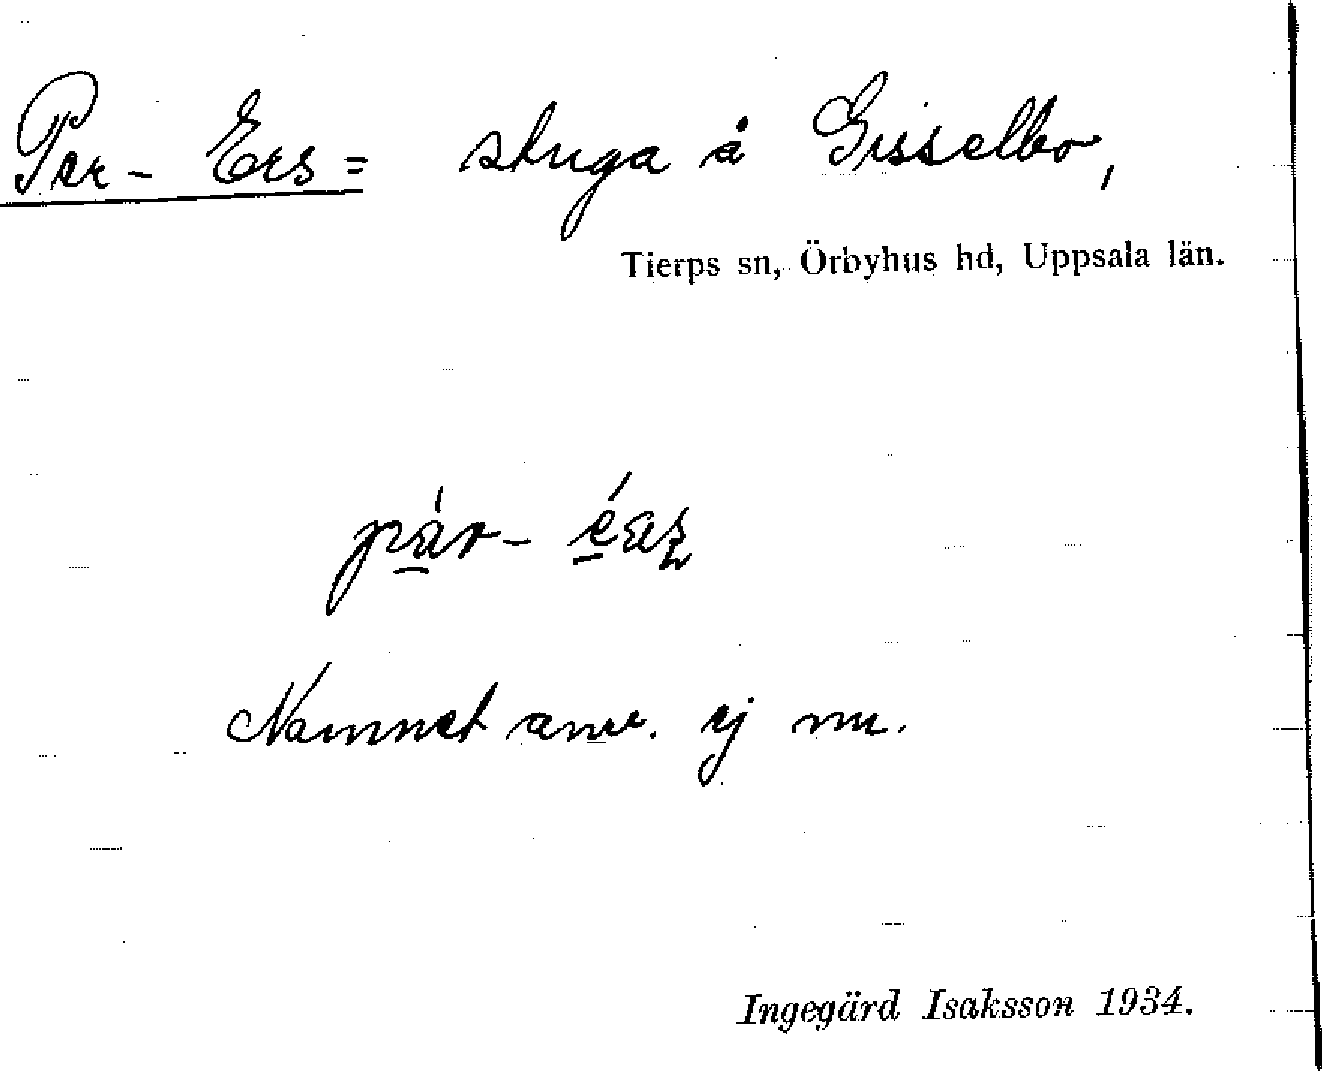 Per-Ers= stuga å Gisselbo,
Tierps sn, Örbyhus hd, Uppsala län.
Namnet anv. ej nu.
Ingegärd Isaksson 1934.